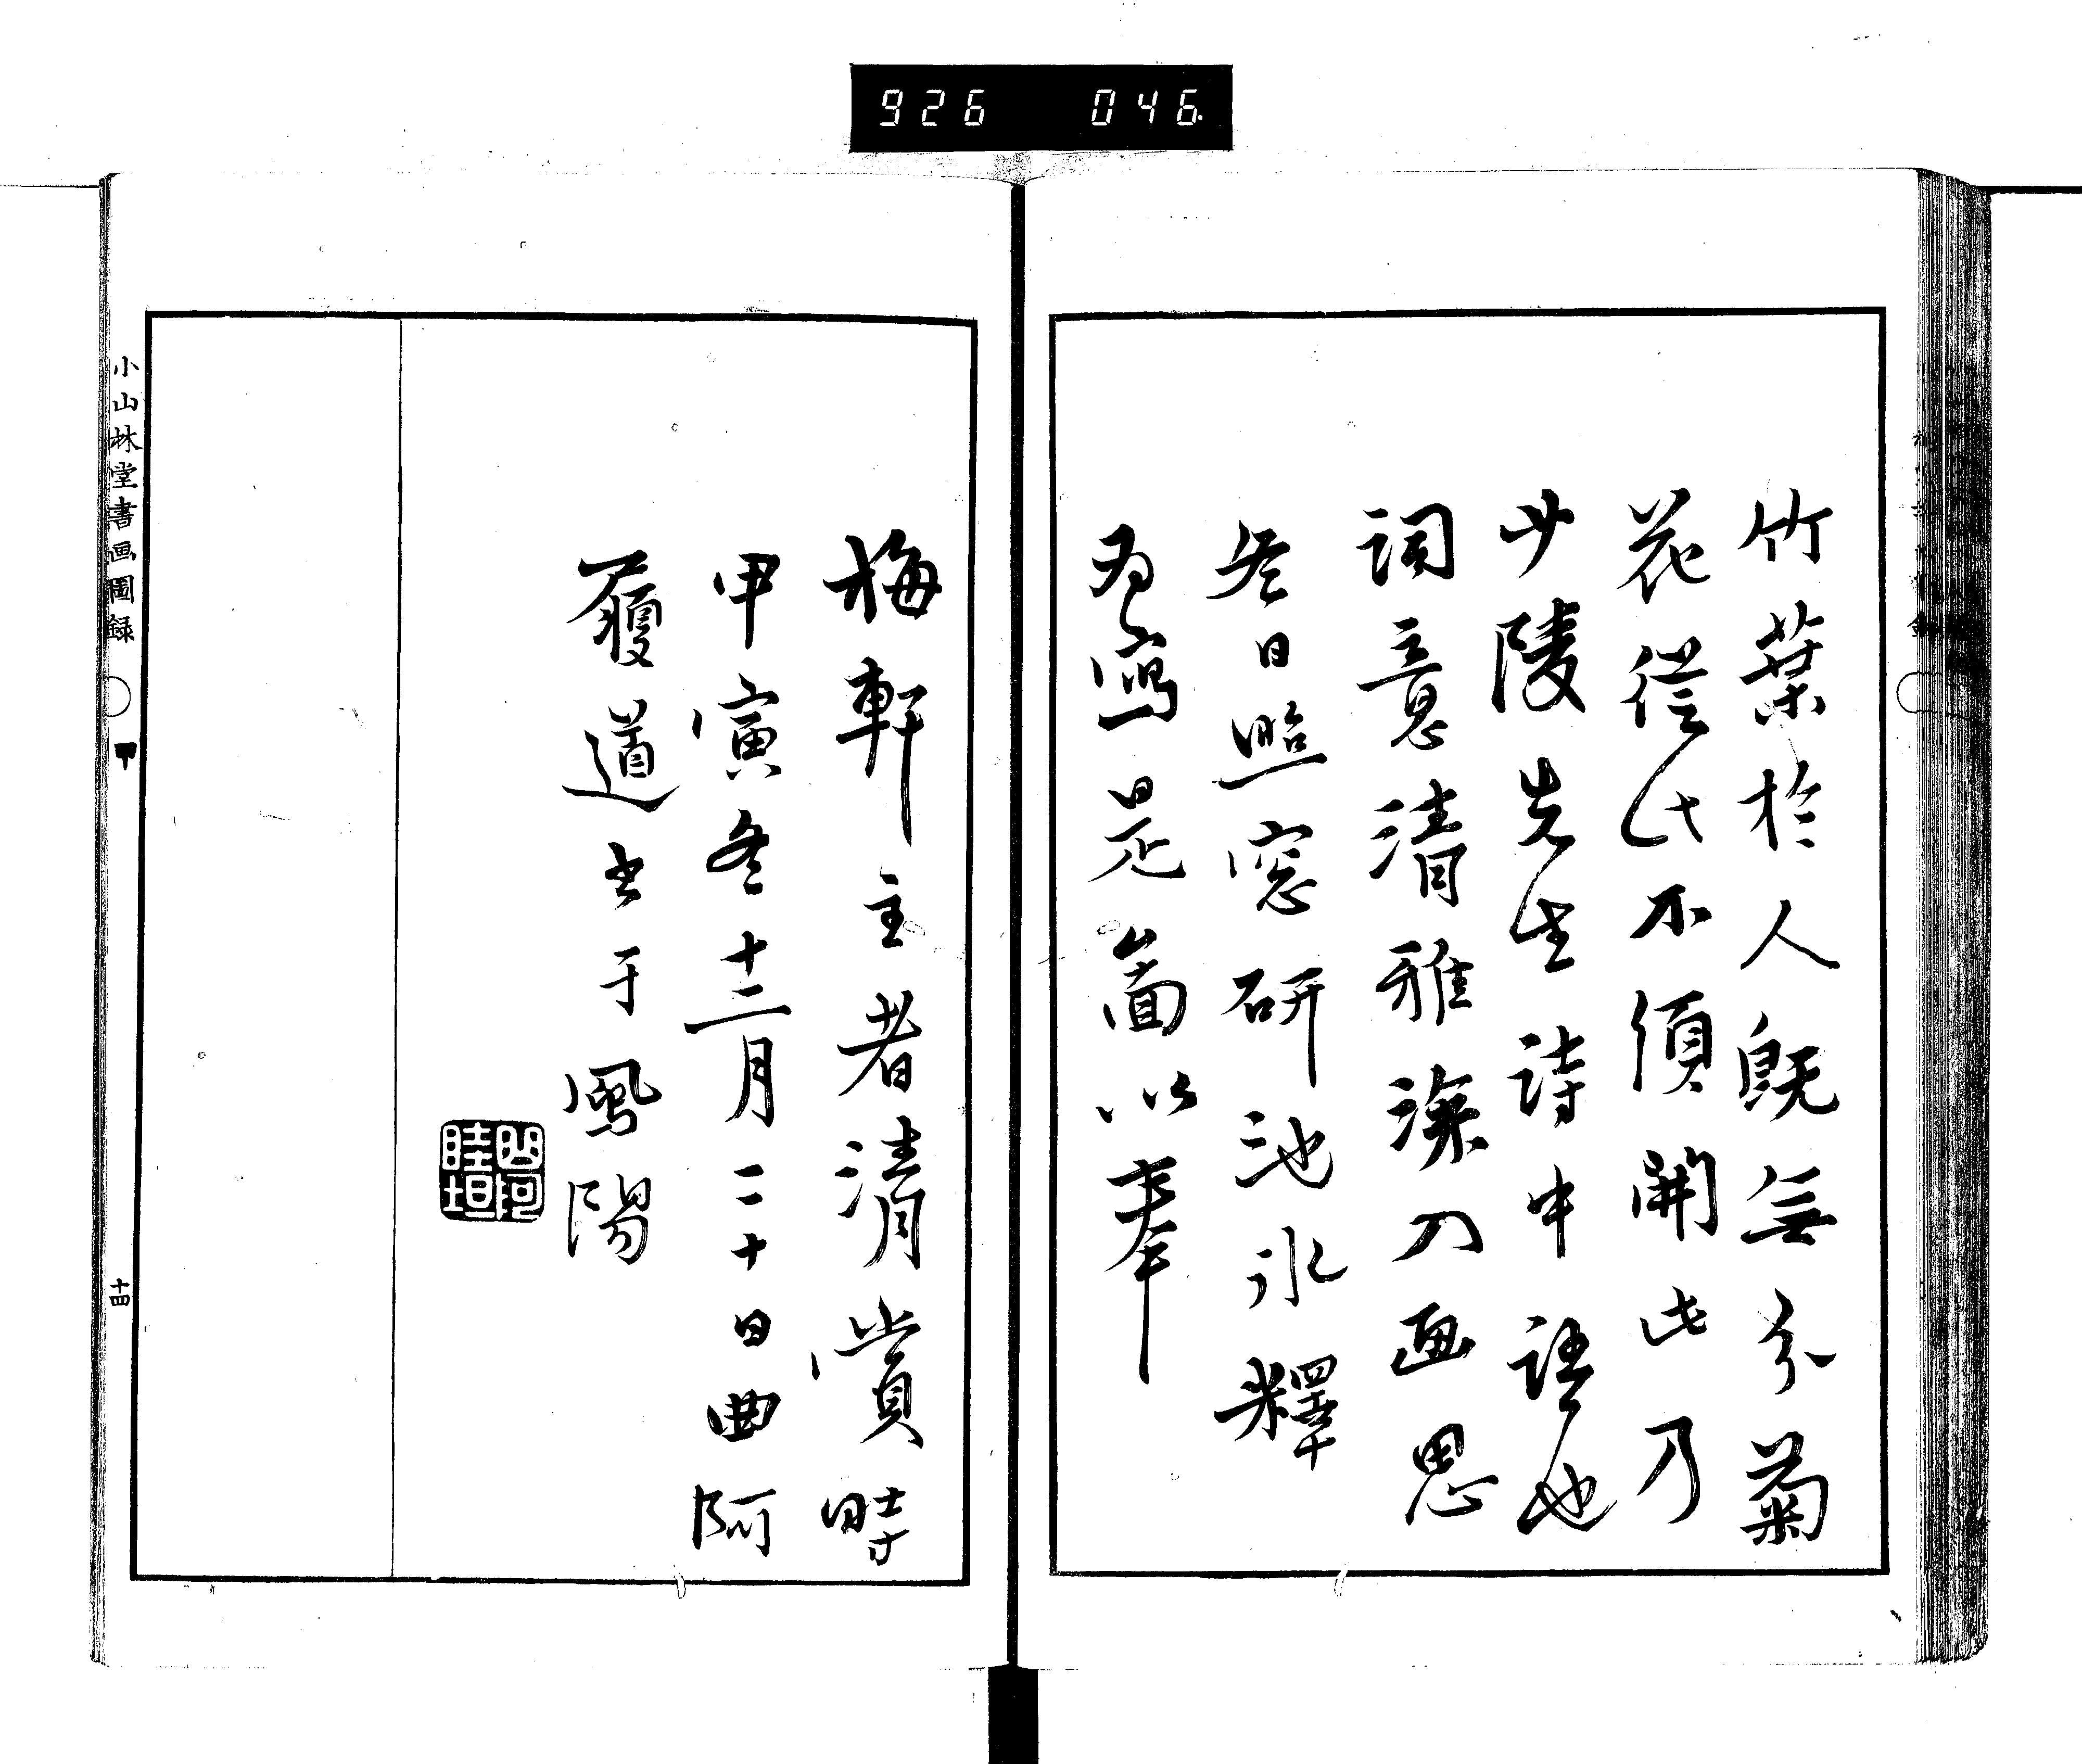 926 046
竹葉於人既無分菊
花從此不須開此乃
少陵先生詩中語也
詞意清雅深入画思
冬日照窓研池氷釋
為寫是圖以奉
梅軒主者清賞時
甲寅冬十二月二十日曲阿
履道書于鳳陽
曲阿
眭坦
小山林堂書画圖録
十四